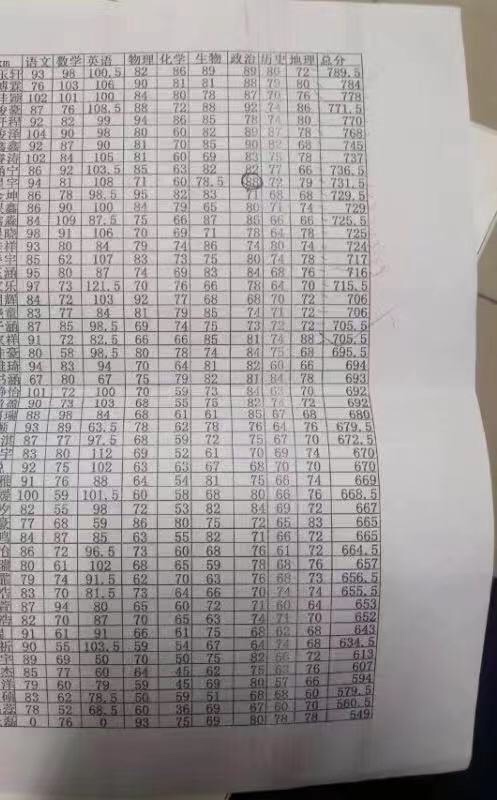 km 语文 数学 英语 物理 化学 生物 政治 历史 地理 总分
轩 93 98 100.5 82 86 89 89 80 72 789.5
霖 76 103 106 90 81 81 88 79 80 784
颖 102 101 100 84 80 78 87 70 76 778
豪 87 76 108.5 88 72 88 92 74 86 771.5
程 92 82 99 94 86 85 78 74 80 770
泽 104 90 98 80 60 82 89 87 78 768
鑫 92 87 90 81 70 85 90 82 68 745
涛 102 84 105 81 60 69 83 75 78 737
宁 86 92 103.5 85 63 82 82 77 66 736.5
宇 94 81 108 71 60 78.5 88 72 79 731.5
坤 86 78 98.5 95 82 83 68 68 729.5
鑫 86 90 100 84 79 65 80 71 74 729
淼 84 109 87.5 75 66 87 85 66 66 725.5
晓 98 91 106 70 69 71 78 64 78 725
祥 93 80 84 79 74 86 74 80 74 724
宇 85 62 107 83 73 75 80 74 78 717
涵 95 80 87 74 69 83 84 68 76 716
乐 97 73 121.5 70 76 66 78 64 70 715.5
辉 84 72 103 92 77 68 68 70 72 706
童 83 77 84 81 79 85 74 71 72 706
涵 87 85 98.5 69 74 75 73 72 72 705.5
样 91 72 82.5 66 66 85 81 74 88 705.5
豪 80 58 98.5 80 78 74 84 75 68 695.5
琦 94 83 94 70 64 81 82 60 66 694
涵 67 80 67 75 79 82 81 84 78 693
怡 101 72 100 70 59 73 84 63 70 692
90 73 103 68 55 75 82 74 72 692
瑞 88 98 84 68 61 61 85 67 68 680
93 89 63.5 78 62 78 76 64 76 679.5
87 77 97.5 68 59 72 75 67 70 672.5
宇 83 80 112 69 52 61 70 69 74 670
92 75 102 63 63 67 68 70 70 670
雅 91 76 88 64 54 81 75 66 74 669
100 59 101.5 60 58 68 80 66 76 668.5
82 55 98 72 53 82 84 69 72 667
豪 77 68 59 86 80 75 72 65 83 665
鸣 84 87 85 63 55 82 71 66 72 665
怡 86 72 96.5 73 60 68 76 61 72 664.5
80 61 102 68 65 59 78 68 76 657
79 74 91.5 62 70 63 76 68 73 656.5
83 70 81.5 73 64 66 70 74 74 655.5
87 94 80 65 60 72 71 60 64 653
82 70 87 70 65 63 74 71 70 652
91 61 91 66 61 75 68 62 68 643
祈 90 55 103.5 59 54 67 64 74 68 634.5
宇 89 69 50 70 50 75 82 56 72 613
杰 85 77 60 64 45 62 75 63 76 607
洋 79 60 79 59 45 69 80 57 66 594
硕 83 62 78.5 50 59 51 68 68 60 579.5
蕊 78 52 68.5 60 36 69 67 60 70 560.5
磊 0 76 0 93 75 69 80 78 78 549